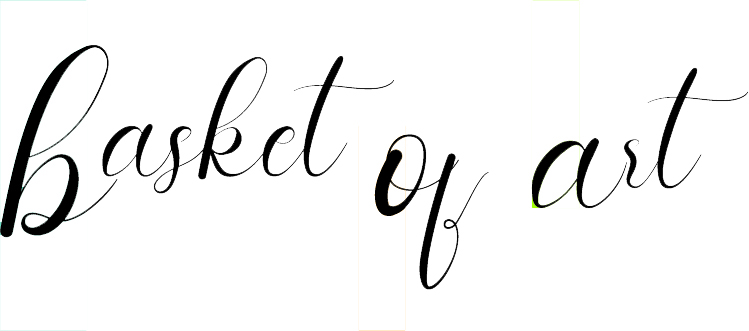 basket of art